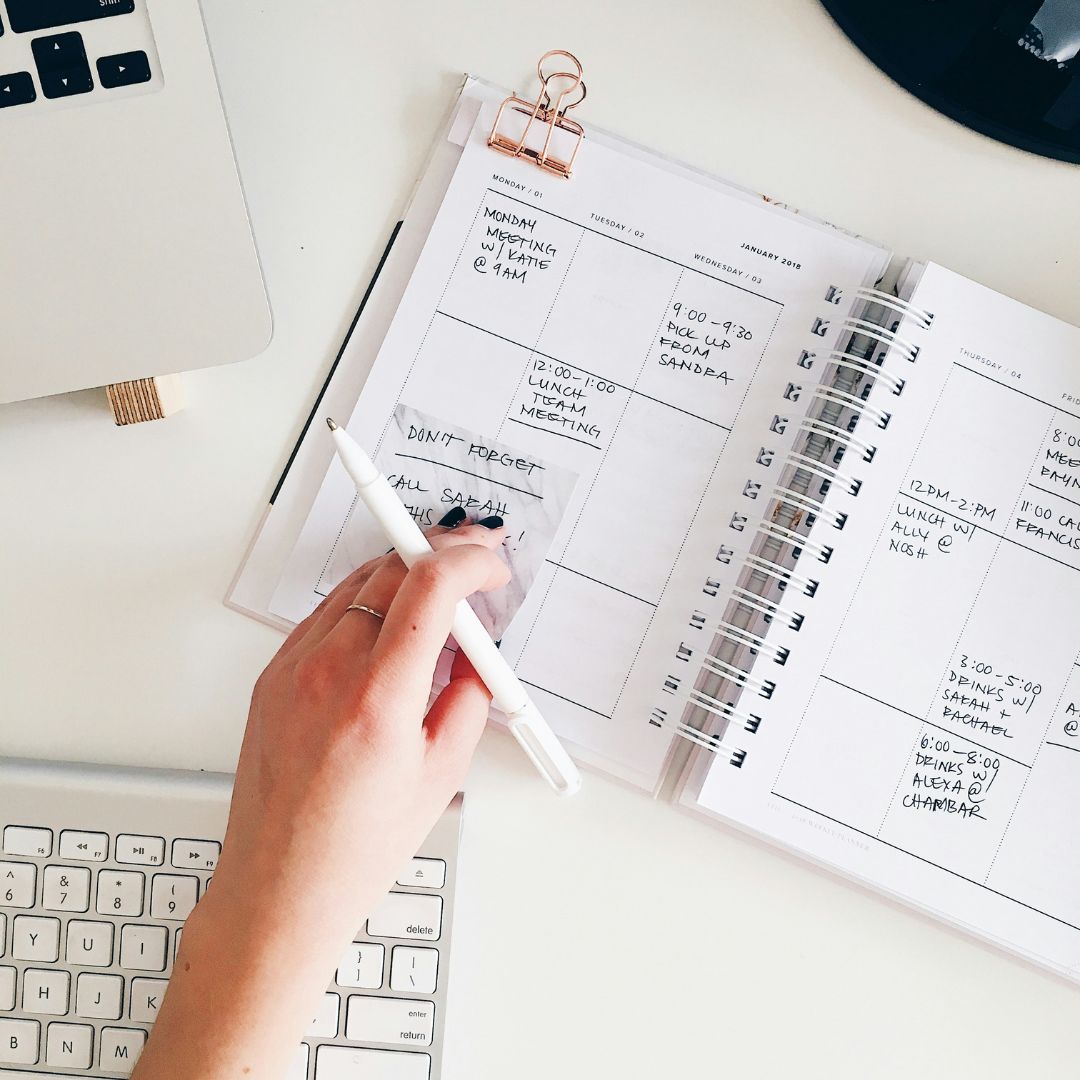 shift
MONDAY / 01
TUESDAY / 02
JANUARY 2018
WEDNESDAY / 03
MONDAY
MEETING
W/ KATIE
@ 9AM
12:00-1:00
LUNCH
TEAM
MEETING
9:00-9:30
PICK UP
FROM
SANDRA
DON'T FORGET
CALL SARAH
THURSDAY / 04
12PM-2PM
LUNCH W/
ALLY @
NOSH
11:00
3:00-5:00
DRINKS W/
SARAH +
RACHAEL
6:00-8:00
DRINKS W/
ALEXA @
CHAMBAR
WEEKLY PLANNER
F6
F7
F8
F9
^
6
&
7
*
8
(
9
delete
Y
U
I
}
]
|
\
H
J
K
enter
return
B
N
M